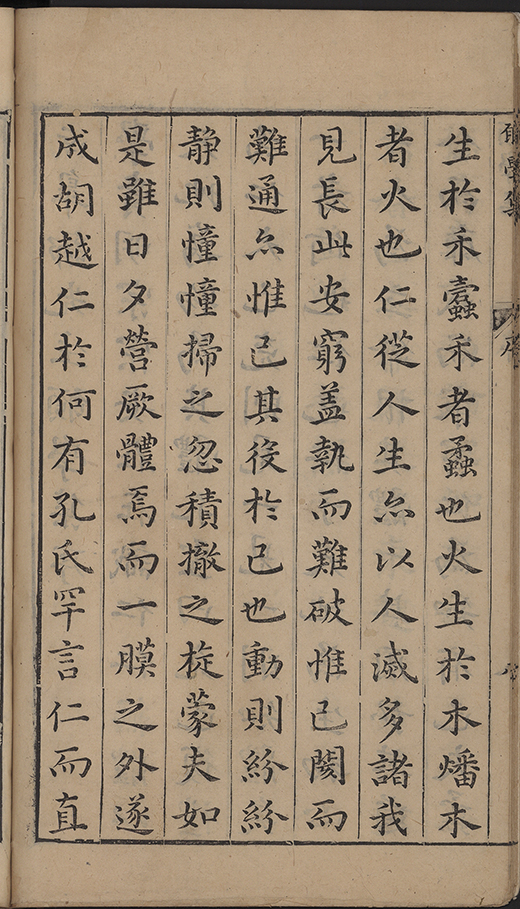 學集
序
生於禾蠧禾者蟊也火生於木燔木
者火也仁從人生亦以人滅多諸我
見長此安窮蓋執而難破惟己閡而
難通亦惟己其役於己也動則紛紛
静則憧憧掃之忽積撤之旋蒙夫如
是雖日夕營厥體焉而一膜之外遂
成胡越仁於何有孔氏罕言仁而直